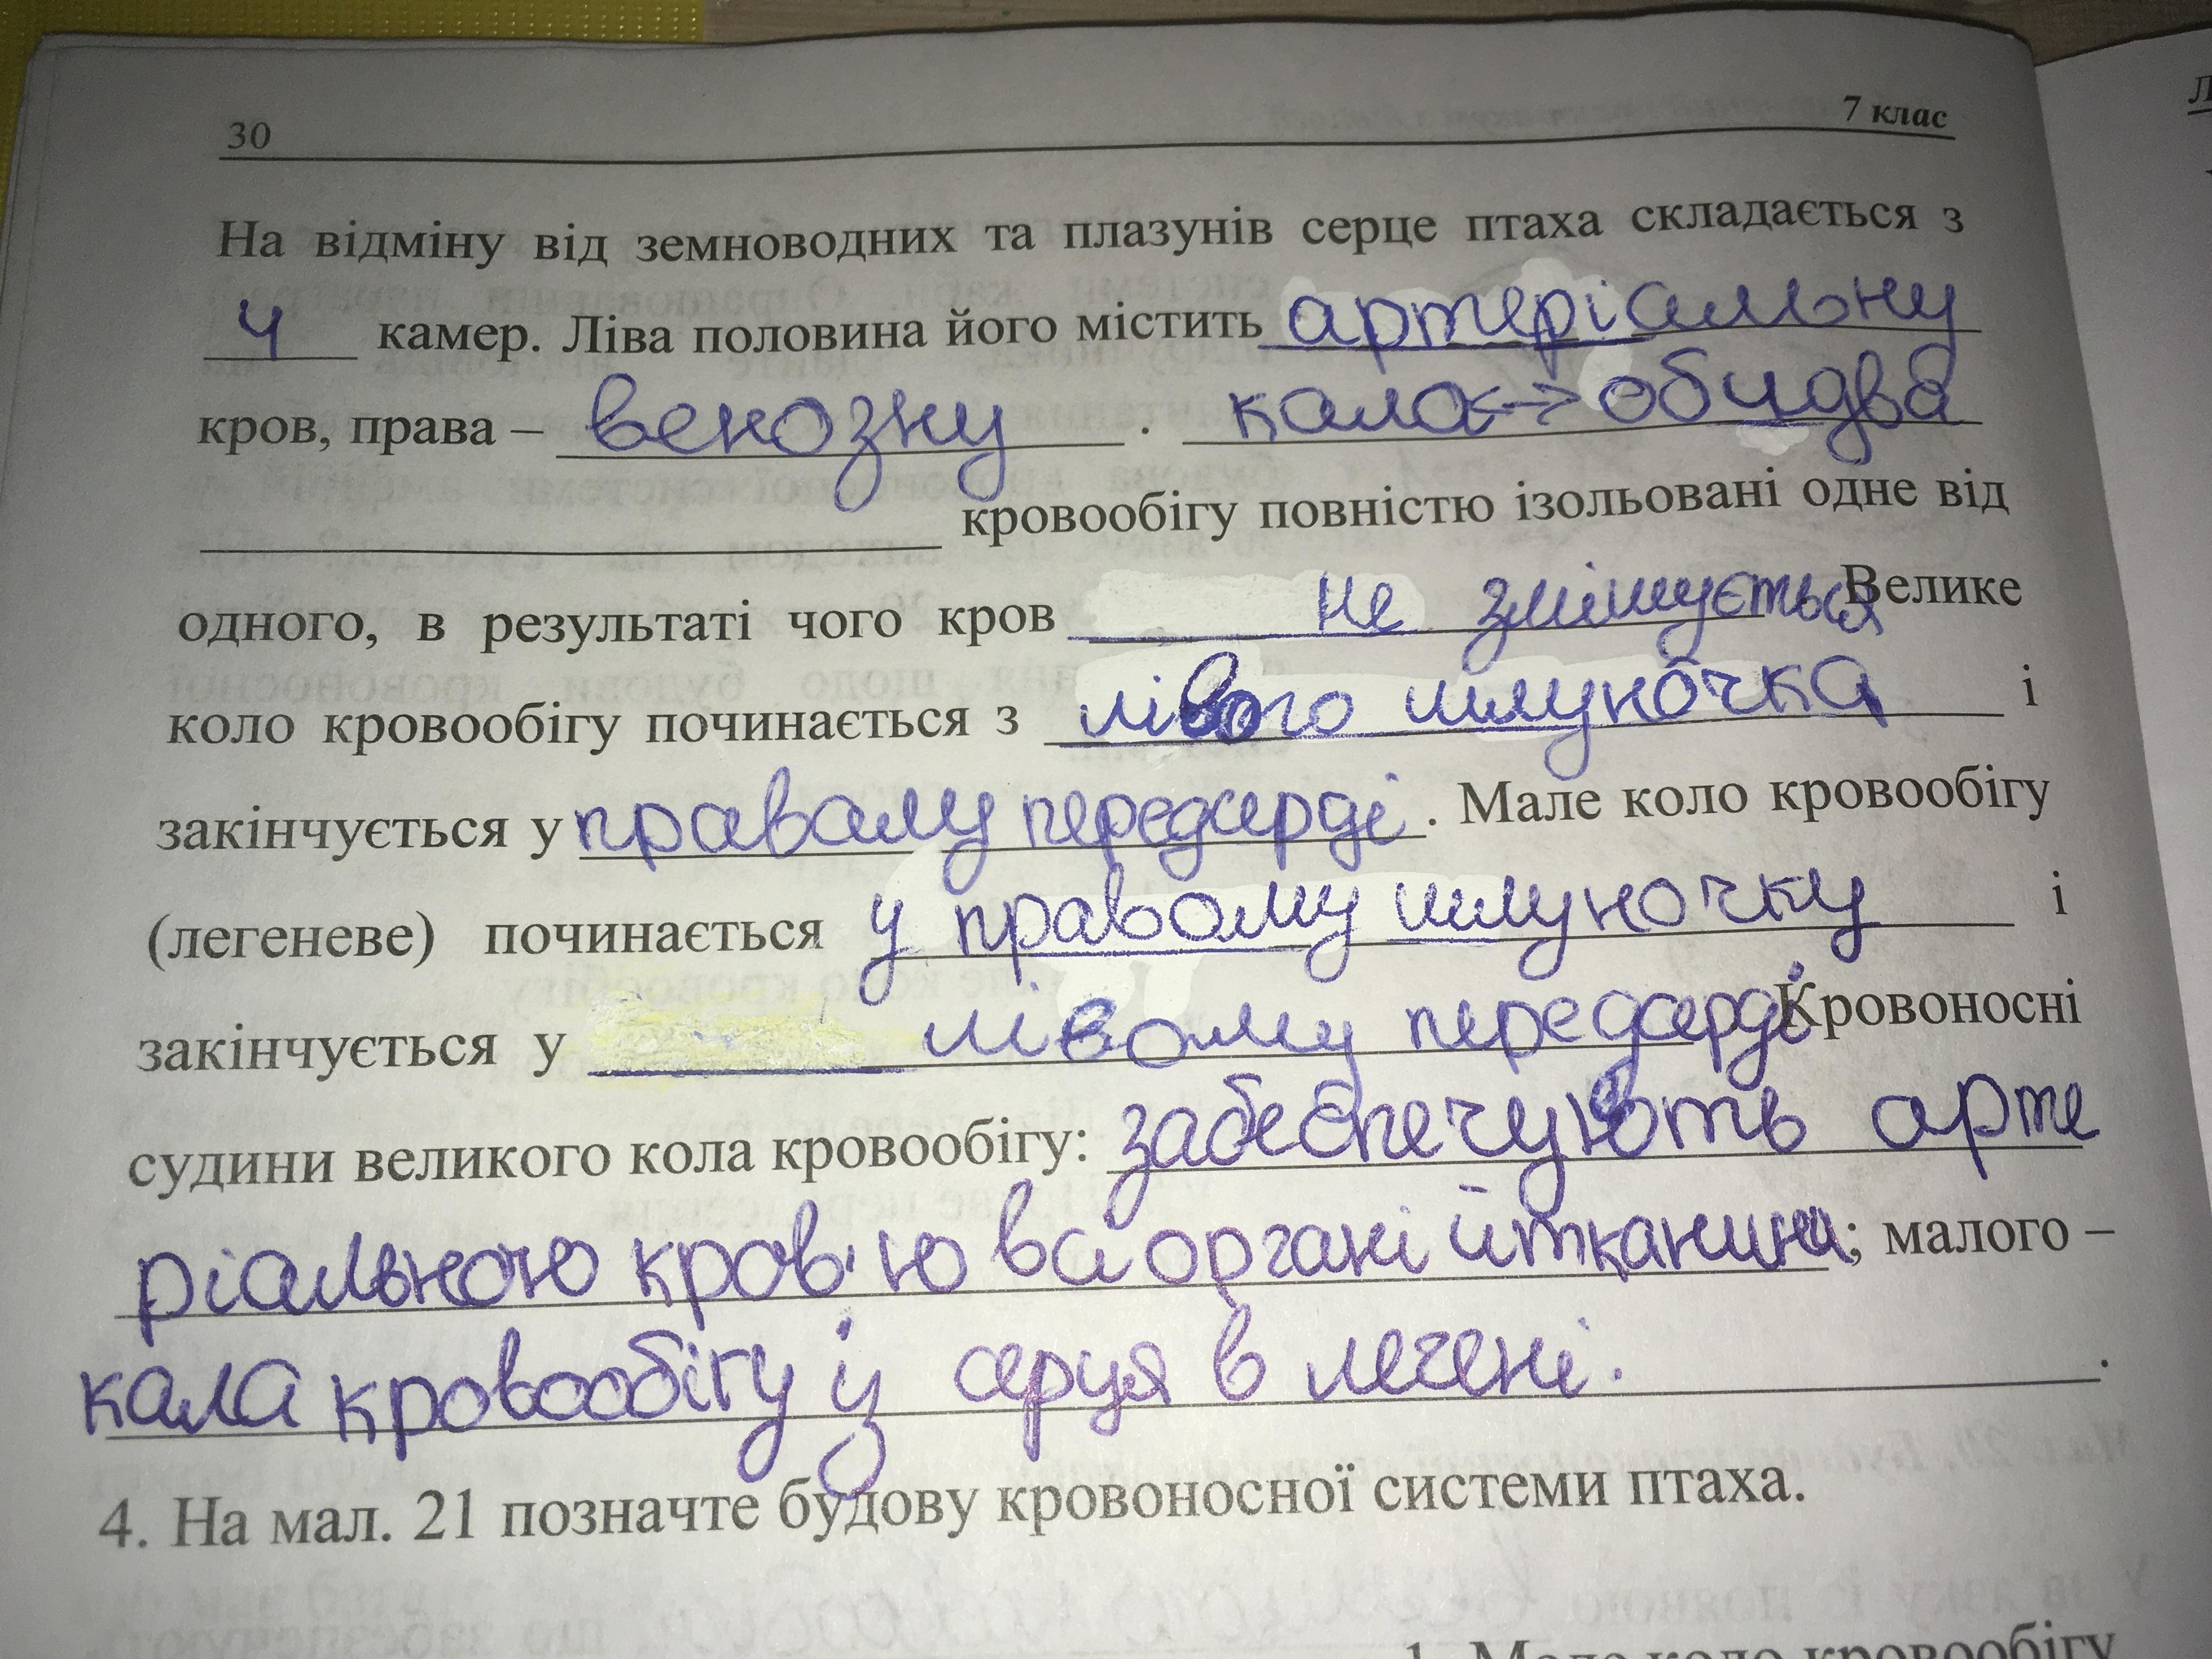 30
7 клас
На відміну від земноводних та плазунів серце птаха складається з
4 камер. Ліва половина його містить артеріальну
кров, права – венозну. кала <-> обидва
кровообігу повністю ізольовані одне від
одного, в результаті чого кров не змішується Велике
коло кровообігу починається з лівого шлуночка і
закінчується у правалу передсерді. Мале коло кровообігу
(легеневе) починається у правому шлуночку і
закінчується у лівому передсерді Кровоносні
судини великого кола кровообігу: забеспечують арте
ріальною кров'ю всі органі й тканини; малого –
кала кровообігу із серця в легені.
4. На мал. 21 позначте будову кровоносної системи птаха.
1. Мале коло кровообігу